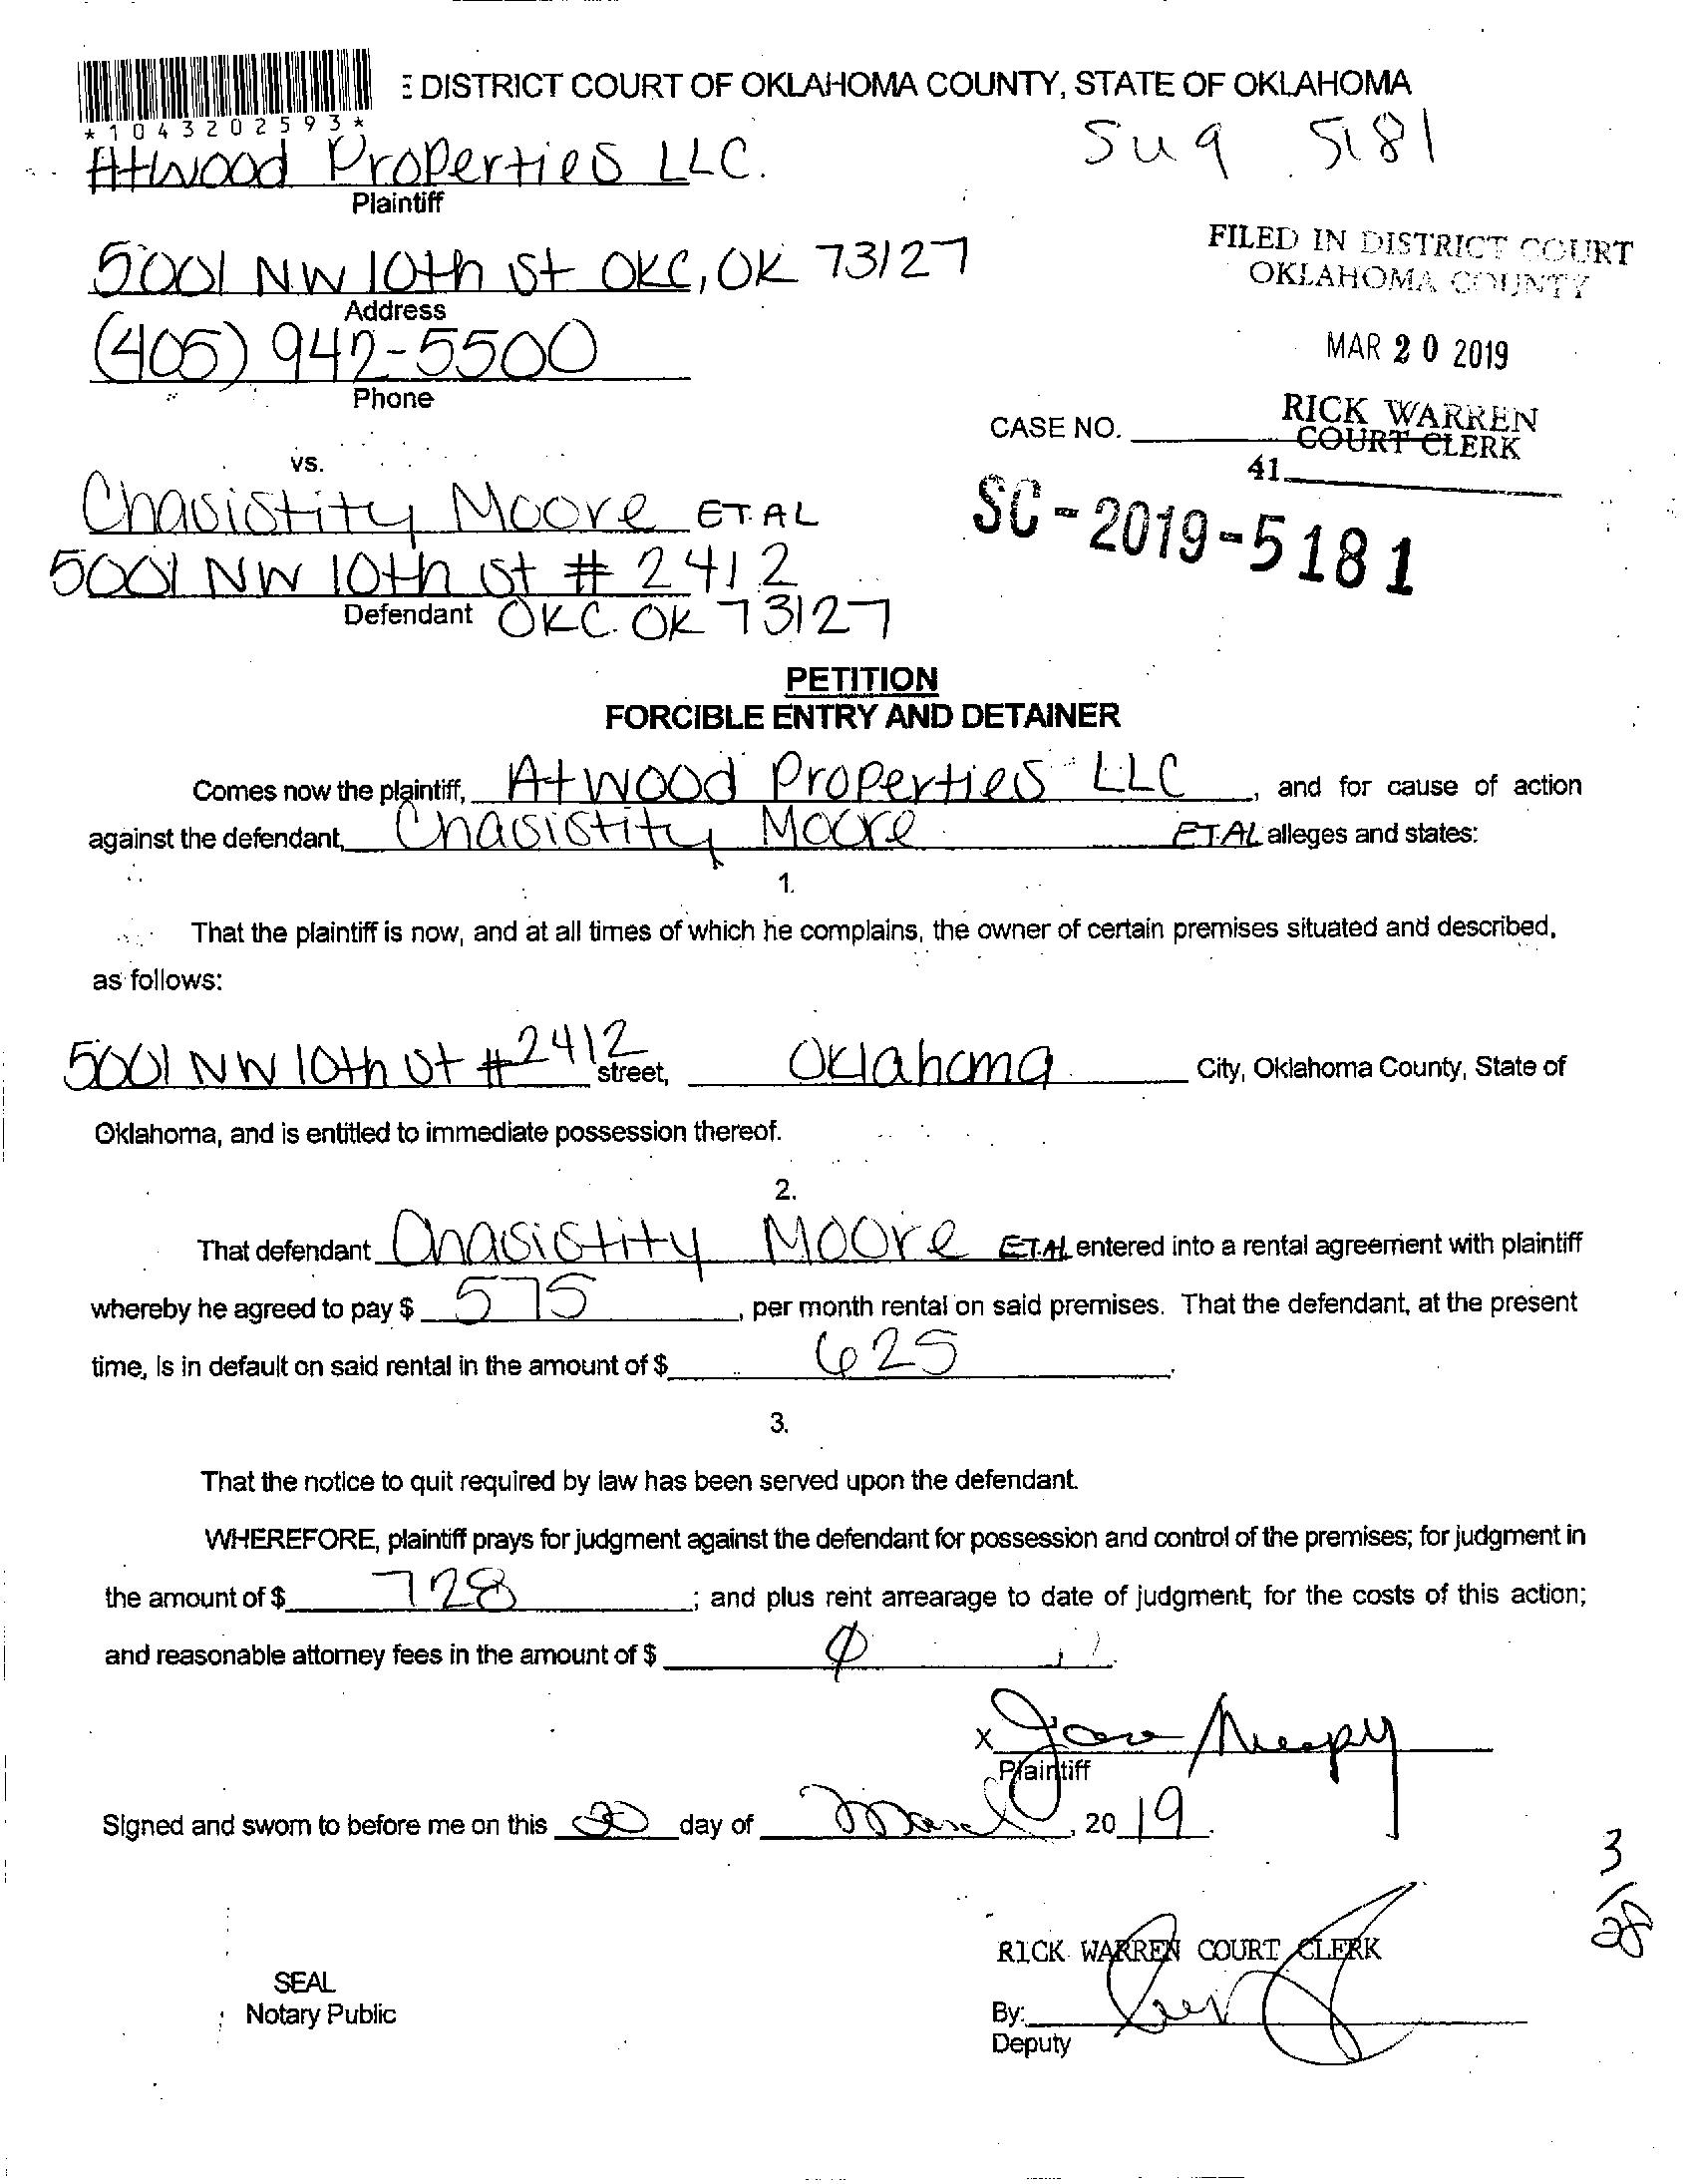 DISTRICT COURT OF OKLAHOMA COUNTY, STATE OF OKLAHOMA
*1043202593*
Atwood Properties LLC.
5181
Plaintiff
5001 NW 10th St OKC, OK 73127
Address
FILED IN DISTRICT COURT
OKLAHOMA COUNTY
(405) 942-5500
Phone
MAR 20 2019
RICK WARREN
COURT CLERK
CASE NO.
41
vs.
Chasistity Moore ET.AL
SC-2019-5181
5001 NW 10th St # 2412
Defendant OKC. OK 73127
PETITION
FORCIBLE ENTRY AND DETAINER
Comes now the plaintiff, Atwood Properties LLC, and for cause of action
against the defendant, Chasistity Moore ET.AL alleges and states:
1.
That the plaintiff is now, and at all times of which he complains, the owner of certain premises situated and described,
as follows:
5001 NW 10th St #2412 street, Oklahoma City, Oklahoma County, State of
Oklahoma, and is entitled to immediate possession thereof.
2.
That defendant Chasistity Moore ET.AL entered into a rental agreement with plaintiff
whereby he agreed to pay $ 575, per month rental on said premises. That the defendant, at the present
time, is in default on said rental in the amount of $ 625.
3.
That the notice to quit required by law has been served upon the defendant.
WHEREFORE, plaintiff prays for judgment against the defendant for possession and control of the premises; for judgment in
the amount of $ 728; and plus rent arrearage to date of judgment; for the costs of this action;
and reasonable attorney fees in the amount of $ ∅.
X
Plaintiff
Signed and sworn to before me on this 20 day of March, 2019.
3/28
RICK WARREN COURT CLERK
SEAL
Notary Public
By:
Deputy